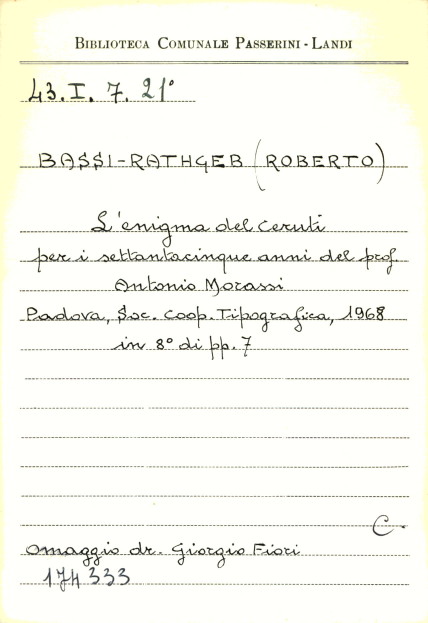 BIBLIOTECA COMUNALE PASSERINI-LANDI
43. I. 7. 21°
BASSI-RATHGEB (ROBERTO)
L'enigma del Ceruti
per i settantacinque anni del prof.
Antonio Morassi
Padova, Soc. Coop. Tipografica, 1968
in 8° di pp. 7
C.
Omaggio dr. Giorgio Fiori
174333